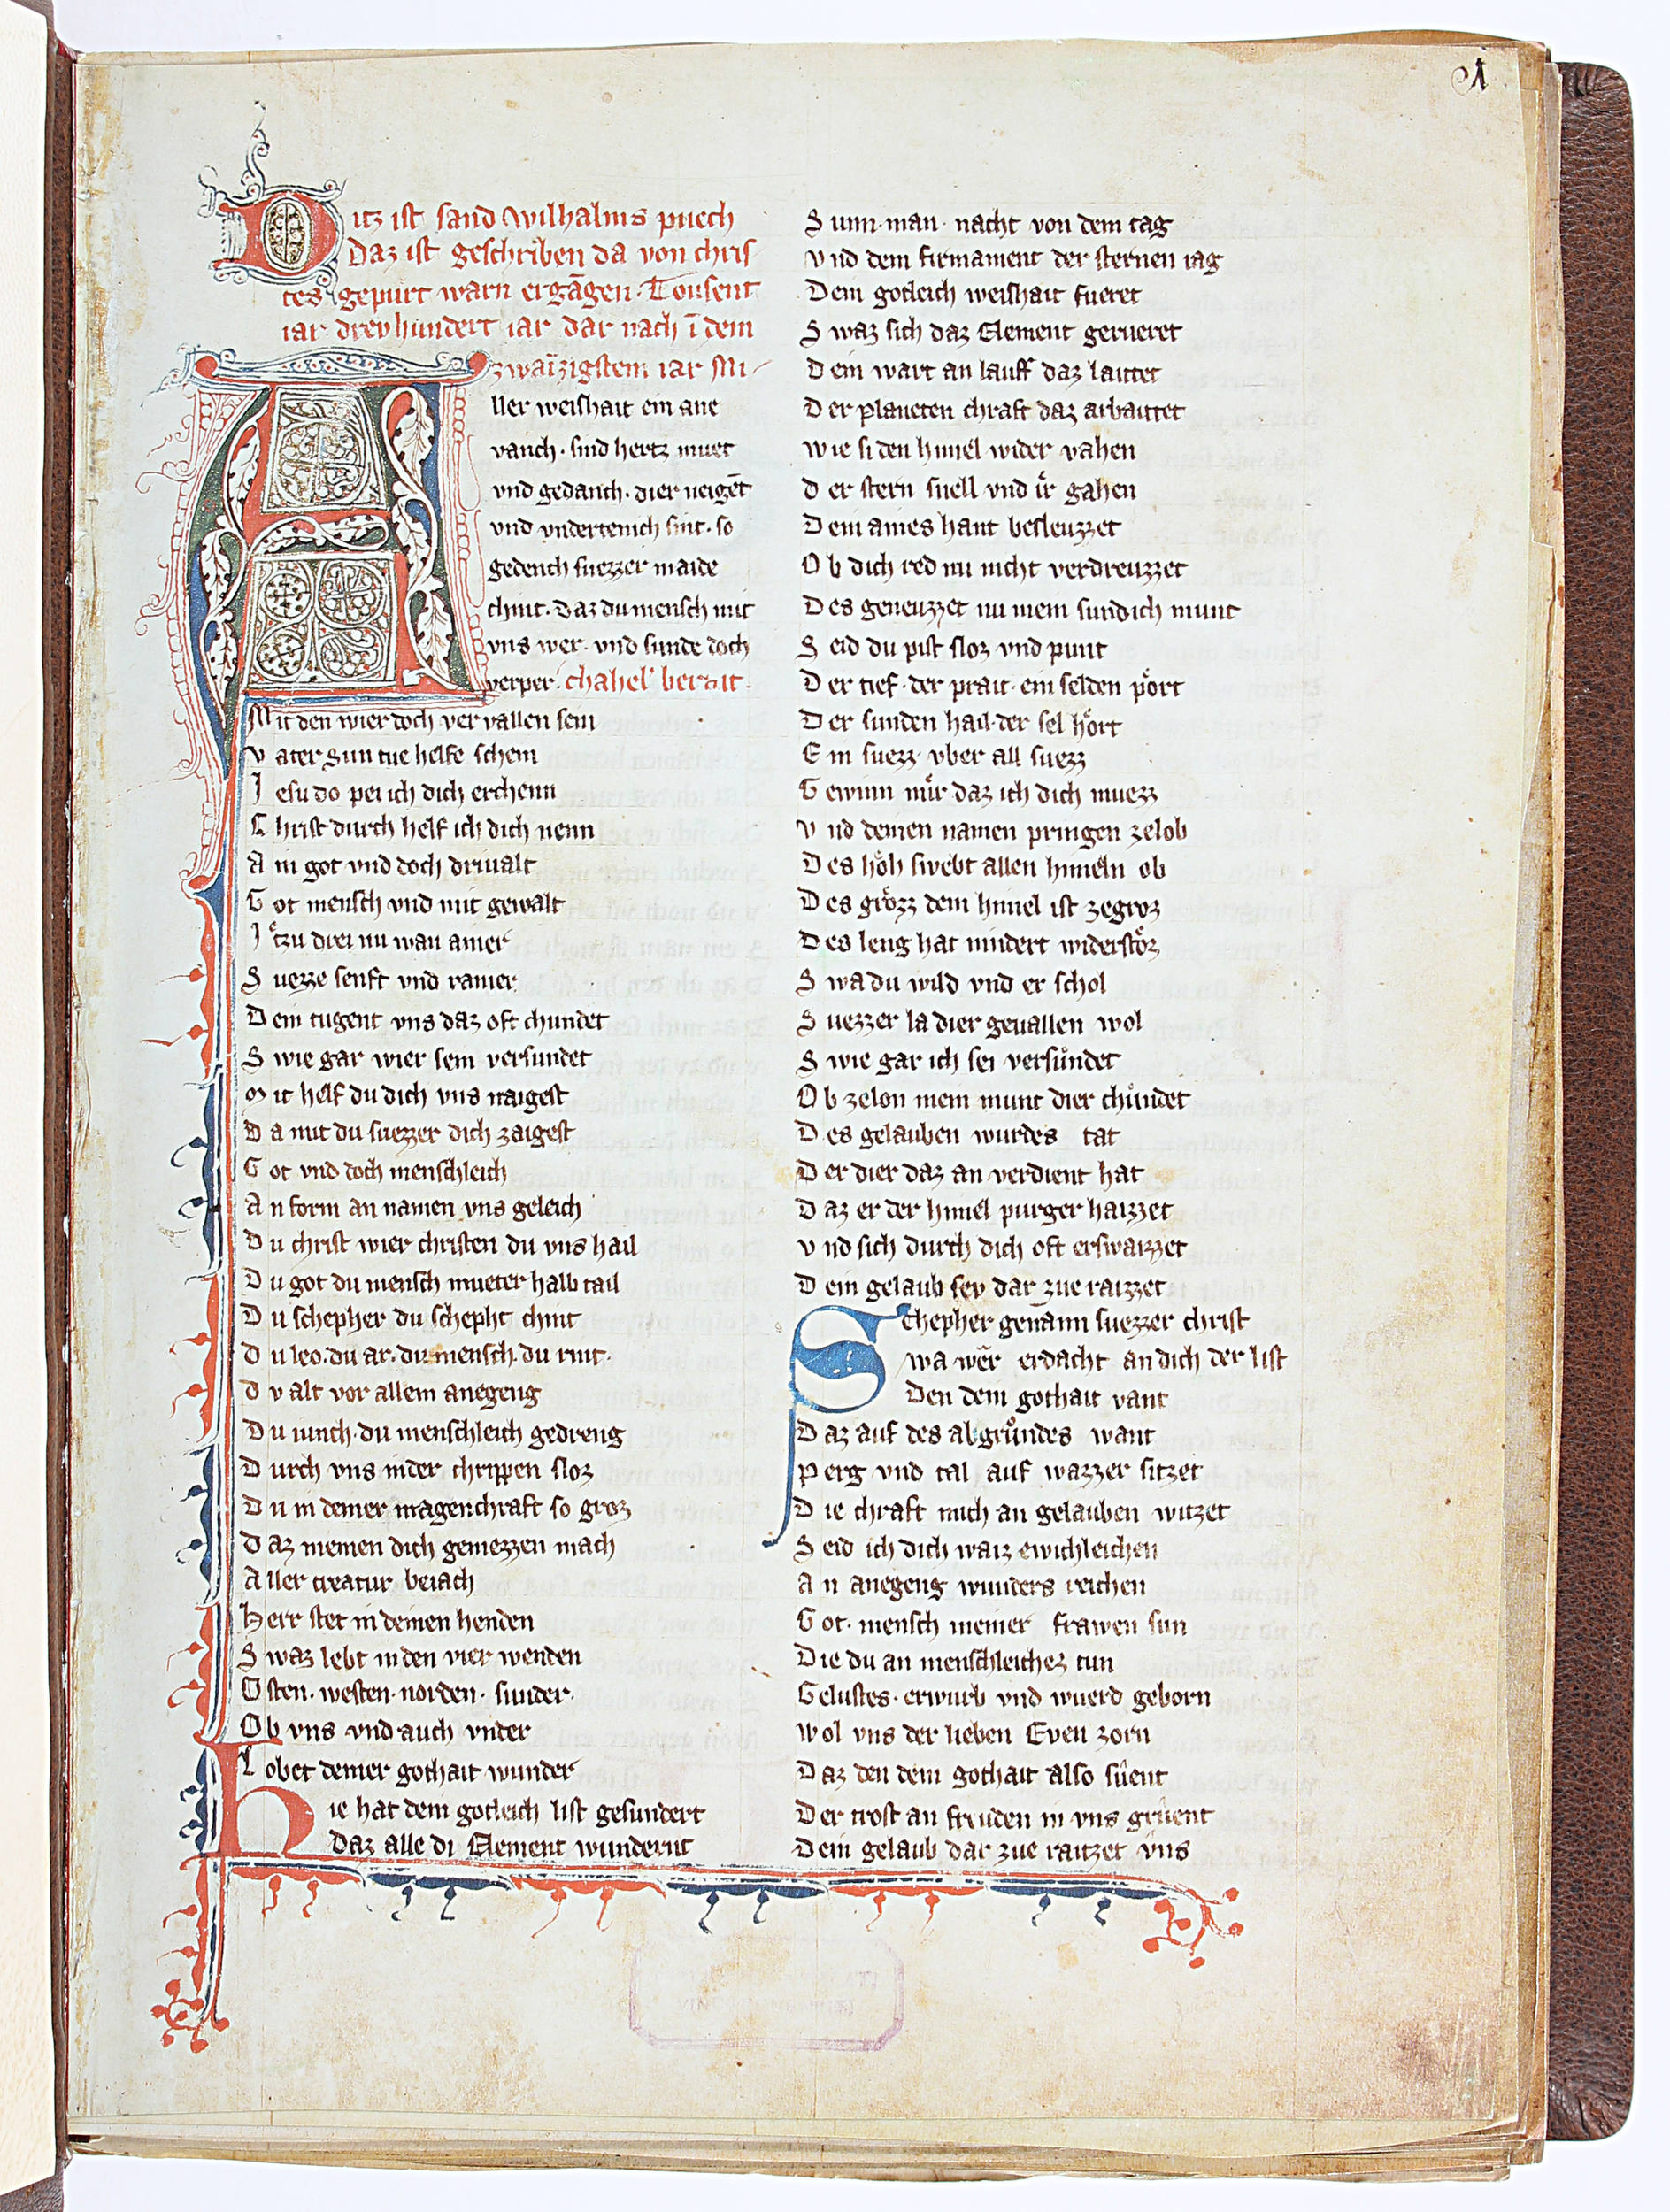 Ditz ist sand Wilhalms puech
Daz ist geschriben da von chris
tes gepurt warn ergāgen· Tousent
iar drevhundert iar dar nach ī dem
zwaīzigstem iar
Aller weishait ein ane
vanch· sind hertz muet
vnd gedanch· dier neigēt
vnd vndertenich sint· so
gedench suezzer maide
chint· Daz du mensch mit
vns wer· vnd sunde doch
verper· chahel berait·
Mit den wier doch ver vallen sein
Vater Sun tue helfe schein
Jesu do pei ich dich erchenn
Christ durch helf ich dich nenn
Ain got vnd doch drivalt
Got mensch vnd mit gewalt
Jͤtzu drei nu wan ainer
Suezze senft vnd rainer
Dein tugent vns daz oft chundet
Swie gar wier sein versundet
Mit helf du dich vns naigest
Da mit du suezzer dich zaigest
Got vnd doch menschleich
An form an namen vns geleich
Du christ wier christen du vns hail
Du got du mensch mueter halb tail
Du schepher du schepht chint
Du leo· du ar· du mensch· du rint·
Dv alt vor allem anegeng
Du iunch· du menschleich gedreng
Durch vns inder chrippen sloz
Du in deiner magenchraft so groz
Daz niemen dich gemezzen mach
Aller creatur beiach
Herr stet in deinen henden
Swaz lebt in den vier wenden
Osten· westen· norden· sunder·
Ob vns vnd auch vnter
Lobet deiner gothait wunder
Hie hat dein gotleich list gesundert
Daz alle di Element wundernt
Sunn· man· nacht von dem tag
Vnd dem firmament der sternen iag
Dein gotleich weishait fueret
Swaz sich daz Element gerueret
Dein wart an lauff daz lautet
Der planeten chraft daz arbaittet
Wie si den himel wider vahen
Der stern snell vnd ir gahen
Dein aines hant besleuzzet
Ob dich red nu nicht verdreuzzet
Des geneuzzet nu mein sundich munt
Seid du pist sloz vnd punt
Der tief· der prait· ein selden pͦrt
Der sunden hail· der sel hͦrt
Ein suezz· vber all suezz
Gewinn mir daz ich dich muezz
Vnd deinen namen pringen zelob
Des hͦh swebt allen himeln ob
Des grͦzz dem himel ist zegroz
Des leng hat nindert widerstͦz
Swa du wild vnd er schol
Suezzer la dier geuallen wol
Swie gar ich sei versůndet
Ob zelon mein munt dier chůndet
Des gelauben wurdes tat
Der dier daz an verdient hat
Daz er der himel purger haizzet
Vnd sich durch dich oft erswaizzet
Dein gelaub sey dar zue raizzet
Schepher genann suezzer christ
Swa wer erdacht an dich der list
Den dein gothait vant
Daz auf des abgrůndes want
Perg vnd tal auf wazzer sitzet
Die chraft mich an gelauben witzet
Seid ich dich waiz ewichleichen
An anegeng wunders reichen
Got· mensch meiner frawen sun
Die du an menschleichez tun
Gelustes· erwurb vnd wuerd geborn
Wol vns der lieben Even zorn
Daz den dein gothait also sůent
Der trost an freuden in vns grůent
Dein gelaub dar zue raitzet vns